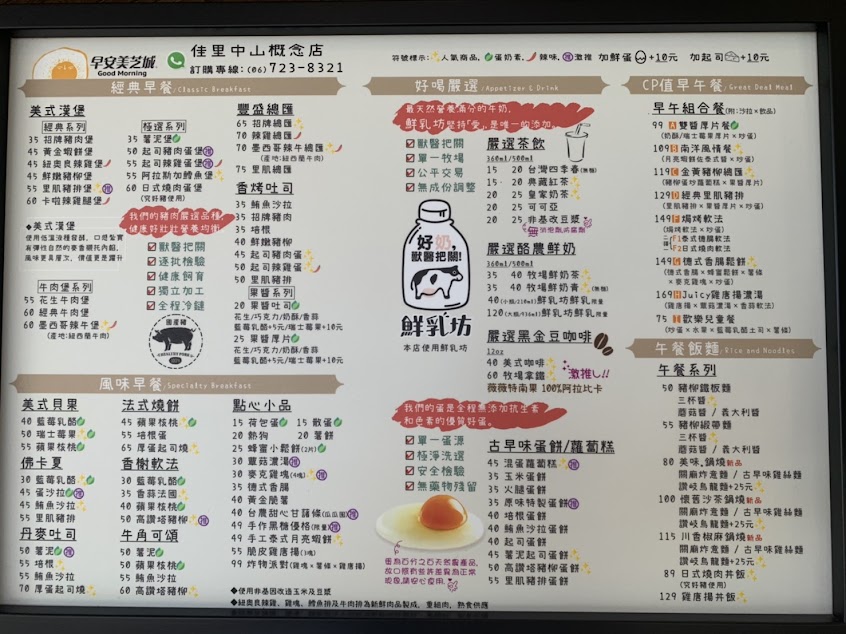 早安美芝城
Good Morning
佳里中山概念店
訂購專線：(06)723-8321
符號標示：人氣商品，蛋奶素，辣味，激推 加鮮蛋+10元 加起司+10元
經典早餐/Classic Breakfast
美式漢堡
經典系列
35 招牌豬肉堡
45 黃金蝦餅堡
45 紐奧良辣雞堡
40 鮮嫩豬柳堡
55 里肌豬排堡
60 卡啦辣雞腿堡
極選系列
35 薯泥堡
50 起司豬肉蛋堡
55 起司辣雞蛋堡
55 阿拉斯加鱈魚堡
60 日式燒肉蛋堡
(究好豬使用)
◆美式漢堡
我們的豬肉嚴選品種
健康好壯壯營養均衡
獸醫把關
逐批檢驗
健康飼育
獨立加工
全程冷鏈
牛肉蛋堡系列
55 花生牛肉堡
60 經典牛肉堡
60 墨西哥辣牛堡
(產地:紐西蘭牛肉)
國產豬
豐盛總匯
65 招牌總匯
70 辣雞總匯
70 墨西哥辣牛總匯
(產地:紐西蘭牛肉)
75 里肌總匯
香烤吐司
35 鮪魚沙拉
35 招牌豬肉
35 培根
40 鮮嫩豬柳
45 起司豬肉蛋
50 起司辣雞蛋
50 里肌豬排
果醬系列
20 果醬吐司
花生/巧克力/奶酥/香蒜
藍莓乳酪+5元/瑞士莓果+10元
25 果醬厚片
花生/巧克力/奶酥/香蒜
藍莓乳酪+5元/瑞士莓果+10元
好喝嚴選/Appetizer & Drink
最天然營養滿分的牛奶,
鮮乳坊堅持「愛」,是唯一的添加。
獸醫把關
單一牧場
公平交易
無成份調整
好奶,
獸醫把關!
鮮乳坊
本店使用鮮乳坊
嚴選茶飲
360ml/500ml
15・20 台灣四季春(無糖)
15・20 典藏紅茶
20 25 皇家奶茶
20 25 可可亞
20 25 非基改豆漿
嚴選酪農鮮奶
360ml/500ml
35 40 牧場鮮奶茶
35 40 牧場鮮奶青(無糖)
40(小瓶/210ml)鮮乳坊鮮乳 限量
120(大瓶/936ml)鮮乳坊鮮乳 限量
嚴選黑金豆咖啡
12oz
40 美式咖啡
60 牧場拿鐵
激推!!
薇薇特南果 100%阿拉比卡
我們的蛋是全程無添加抗生素
和色素的優質好蛋。
單一蛋源
極淨洗選
安全檢驗
無藥物殘留
古早味蛋餅/蘿蔔糕
45 混蛋蘿蔔糕
35 玉米蛋餅
35 火腿蛋餅
35 原味特製蛋餅
40 培根蛋餅
40 鮪魚沙拉蛋餅
40 起司蛋餅
45 薯泥起司蛋餅
50 高讚塔豬柳蛋餅
55 里肌豬排蛋餅
風味早餐/Specialty Breakfast
美式貝果
40 藍莓乳酪
50 瑞士莓果
55 蘋果核桃
佛卡夏
30 藍莓乳酪
45 蛋沙拉
45 鮪魚沙拉
55 里肌豬排
丹麥吐司
50 薯泥
55 培根
55 鮪魚沙拉
70 厚蛋起司燒
法式燒餅
45 蘋果核桃
55 培根蛋
65 厚蛋起司燒
香榭軟法
30 藍莓乳酪
35 香蒜法國
40 蘋果核桃
50 高讚塔豬柳
牛角可頌
50 薯泥
55 蘋果核桃
55 鮪魚沙拉
60 高讚塔豬柳
點心小品
15 荷包蛋 15 散蛋
20 熱狗 20 薯餅
25 蜂蜜小鬆餅(2片)
30 蘑菇濃湯
30 麥克雞塊(4塊)
35 德式香腸
40 黃金脆薯
40 台農甜心甘藷條(瓜瓜園)
49 手作黑糖優格(限量)
49 手工泰式月亮蝦餅
55 脆皮雞唐揚(3塊)
99 炸物派對(雞塊×薯條×雞唐揚)
◆使用非基因改造玉米及豆漿
CP值早午餐/Great Deal Meal
早午組合餐(附:沙拉×飲品)
99 A 雙醬厚片餐
(奶酥/瑞士莓果厚片×炒蛋)
109 B 南洋風情餐
(月亮蝦餅佐泰式醬×炒蛋)
119 C 金黃豬柳總匯
(豬柳蛋炒蘿蔔糕×果醬厚片)
129 D 經典里肌豬排
(里肌豬排×果醬厚片×炒蛋)
149 F 焗烤軟法
(焗烤軟法×炒蛋)
F1 泰式檸腸軟法
F2 日式燒肉軟法
149 G 德式香腸鬆餅
(德式香腸×蜂蜜鬆餅×薯條
×麥克雞塊×炒蛋)
169 H Juicy雞唐揚濃湯
(雞唐揚×蘑菇濃湯×香蒜軟法)
75 K 歡樂兒童餐
(炒蛋×水果×藍莓乳酪土司×薯條)
午餐飯麵/Rice and Noodles
午餐系列
50 豬柳鐵板麵
三杯醬
蘑菇醬 / 義大利醬
55 豬柳緞帶麵
三杯醬
蘑菇醬 / 義大利醬
80 美味.鍋燒 新品
關廟炸意麵 / 古早味雞絲麵
讚岐烏龍麵+25元
100 懷舊沙茶鍋燒 新品
關廟炸意麵 / 古早味雞絲麵
讚岐烏龍麵+25元
115 川香椒麻鍋燒 新品
關廟炸意麵 / 古早味雞絲麵
讚岐烏龍麵+25元
89 日式燒肉丼飯
(究好豬使用)
129 雞唐揚丼飯